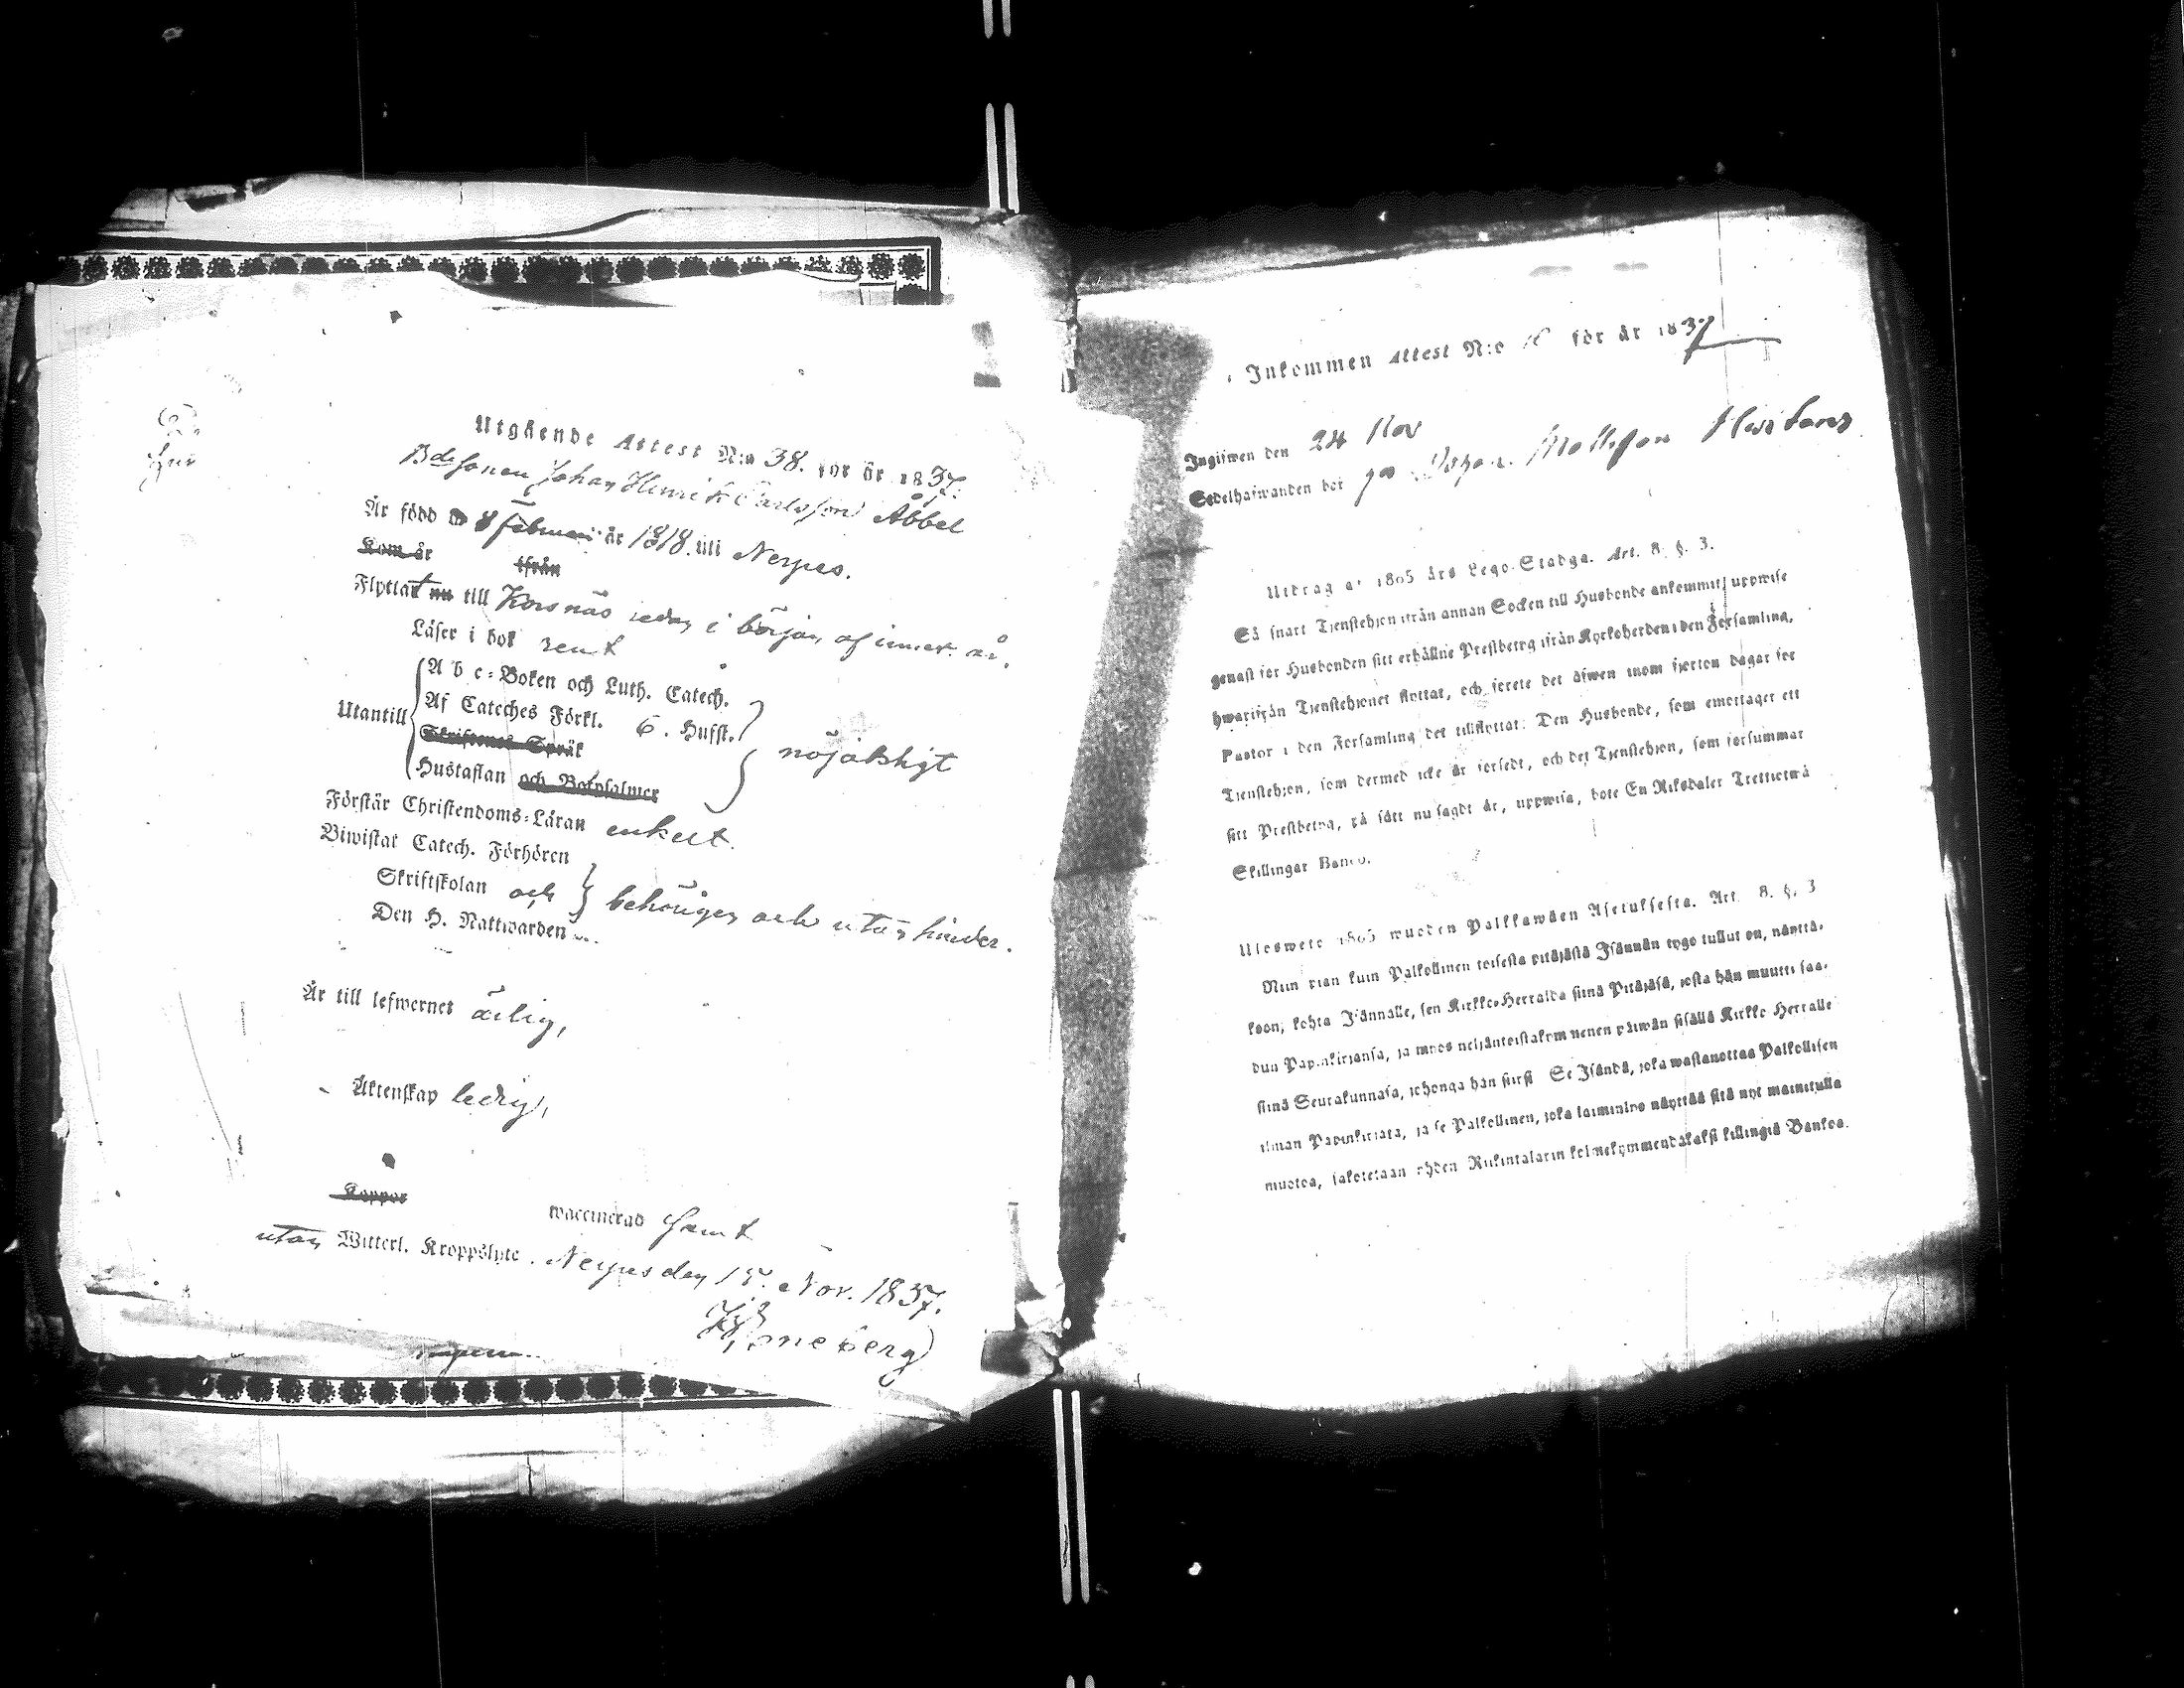 Utgående Attest N:o 38. för år 1837.
Bdesonen Johan Henrik Carlsson Åbbel
År född d 8 Februari år 1818. uti Nerpes.
Kom år ifrån
Flyttat nu till Korsnäs redan i början af innev. år.
Läser i bok rent
A b c-Boken och Luth. Catech.
Af Cateches Förkl. 6. Hufst.
Utantill
Skriftenes Språk
nöjaktigt
Hustaflan och Botpsalmer
Förstår Christendoms-Läran enkelt.
Biwistat Catech. Förhören
Skriftskolan och
behörigen och utan hinder.
Den H. Nattwarden
År till lefwernet ärlig,
Äktenskap ledig,
Koppor waccinerad samt
utan Witterl. Kroppslyte. Nerpes den 15. Nov. 1837.
Inkommen Attest N:o för år 1837
Ingifwen den 24 Nov
Sedelhafwanden bor Johan Mattsson
Utdrag af 1805 års Lego-Stadga. Art. 8. §. 3.
Så snart Tjenstehjon ifrån annan Socken till Husbonde ankommit, uppwise
genast för Husbonden sitt erhållne Prestbetyg ifrån Kyrkoherden i den Församling,
hwarifrån Tjenstehjonet flyttat, och förete det äfwen inom fjorton dagar för
Pastor i den Församling det tillflyttat. Den Husbonde, som emottager ett
Tjenstehjon, som dermed icke är försedt, och det Tjenstehjon, som försummar
sitt Prestbetyg, på sätt nu sagdt är, uppwisa, böte En Riksdaler Trettiotwå
Skillingar Banco.
Ulosweto 1805 wuoden Palkkawäen Asetuksesta. Art. 8. §. 3
Niin pian kuin Palkollinen toisesta pitäjästä Isännän tygö tullut on, näyttä-
köön, kohta Isännälle, sen Kirkko-Herralda siinä Pitäjäsä, josta hän muutti saa-
dun Papinkirjansa, ja myös neljäntoistakymmenen päiwän sisällä Kirkko Herralle
siinä Seurakunnasa, johonga hän siirsi Se Isändä, joka wastanottaa Palkollisen
ilman Papinkirjata, ja se Palkollinen, joka laiminlyö näyttää sitä nyt mainitulla
muotoa, sakotetaan yhden Riikintalarin kolmekymmendäkaksi killingiä Bankoa.